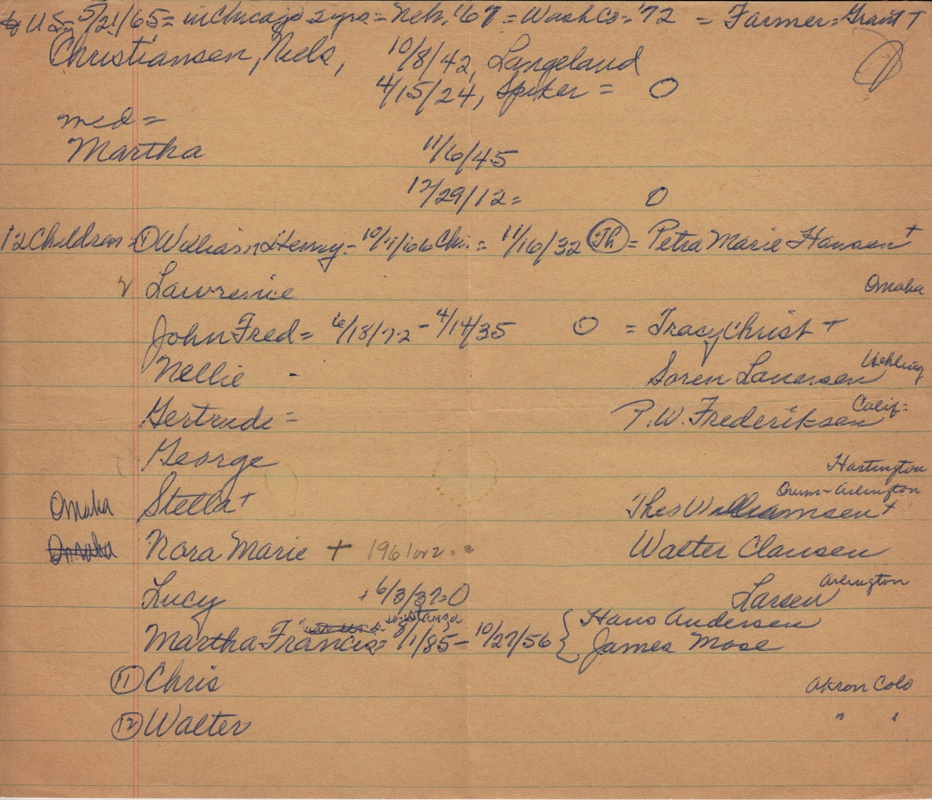 U.S. 5/21/65 = in Chicago 2 yrs = Neb. '67 = Wash Co = '72 = Farmer = Grant †
Christiansen, Niels, 10/8/42, Langeland
4/15/24, Spiker = O
med =
Martha 11/6/45
12/29/12 = O
12 Children = ① William Henry - Chi. = 11/16/32 (Th) = Petra Marie Hansen †
2 Lawrence Omaha
John Fred = 6/13/72 - 4/14/35 O = Tracy Christ †
Nellie - Soren Laursen Uehling
Gertrude = P.W. Frederiksen Calif =
George Hartington
Omaha Stella † Theo Williamsen † Orum - Arlington
Omaha Nora Marie † 196 Walter Clausen
Lucy + 6/3/37 = O Larsen Arlington
Martha Francis = 8/1/85 - 10/27/56 { Hans Andersen
James Mose
⑪ Chris Akron Colo
⑫ Walter " "